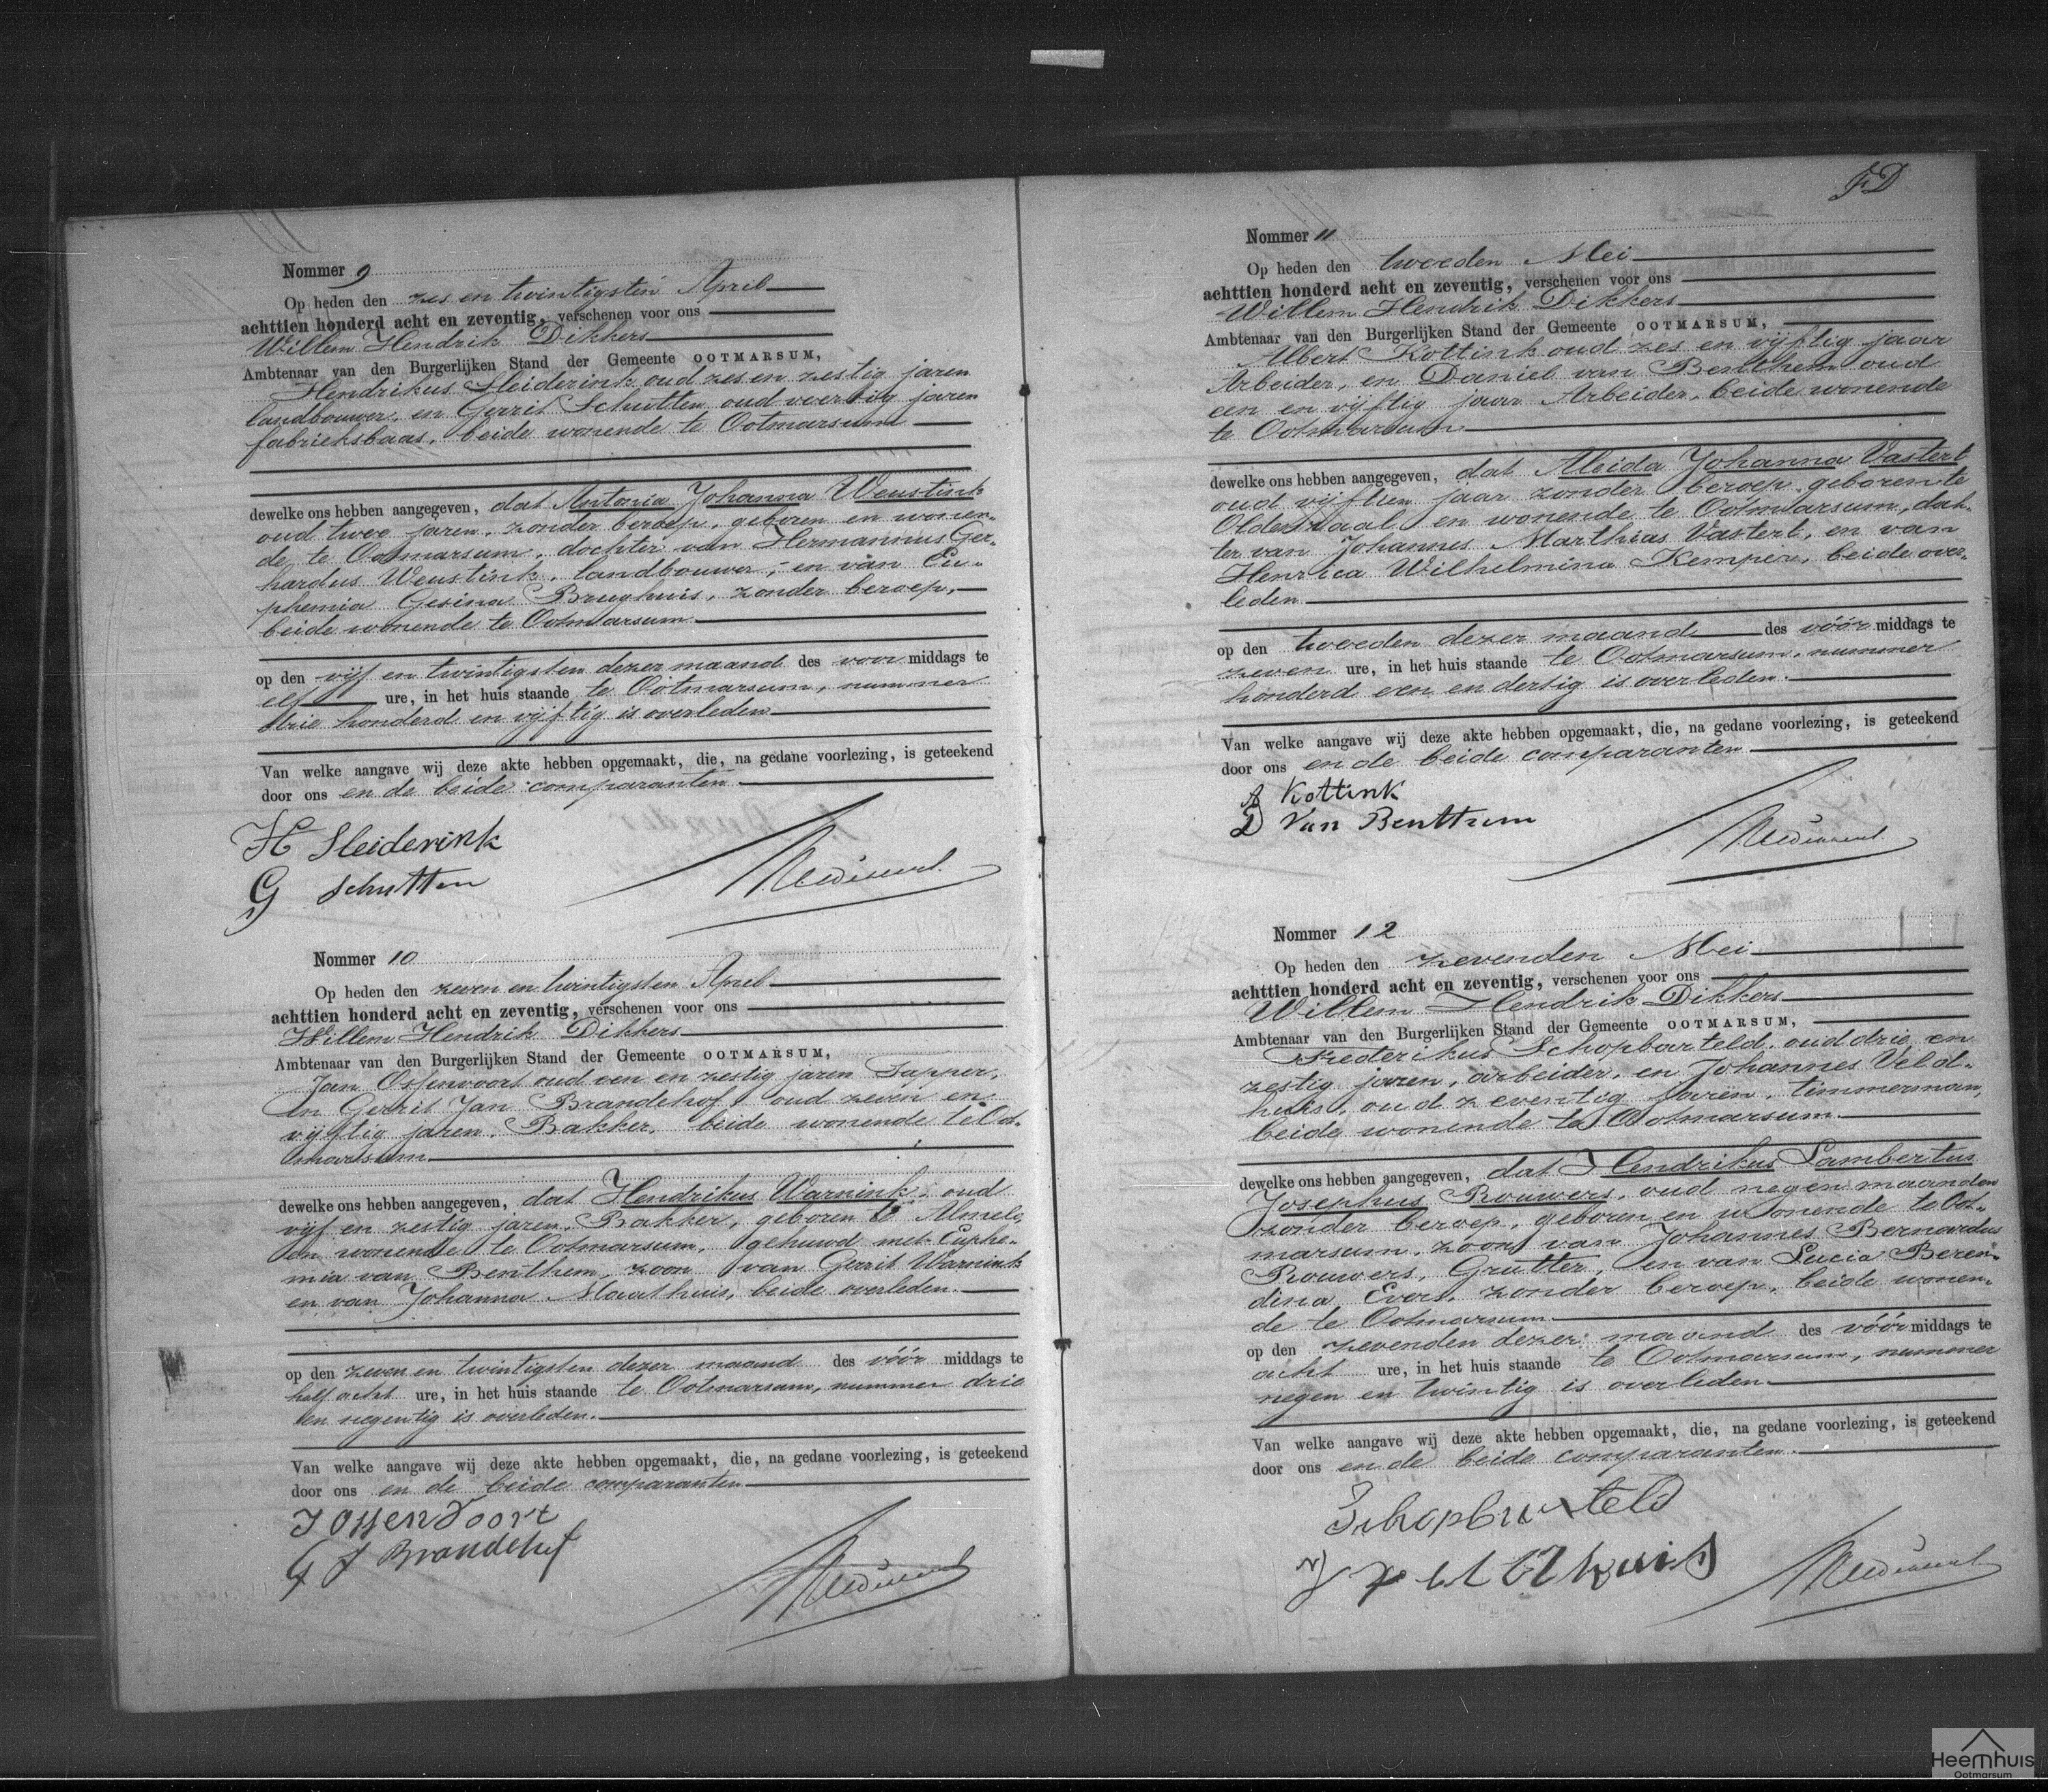 Nommer 9
Op heden den zes en twintigsten April
achttien honderd acht en zeventig, verschenen voor ons
Willem Hendrik Dikkers
Ambtenaar van den Burgerlijken Stand der Gemeente OOTMARSUM,
Hendrikus Sleiderink oud zes en zestig jaren
landbouwer, en Gerrit Schutten oud veertig jaren
fabrieksbaas, beide wonende te Ootmarsum
dewelke ons hebben aangegeven, dat Antonia Johanna Weustink
oud twee jaren, zonder beroep, geboren en wonen-
de te Ootmarsum, dochter van Hermannus Ger-
hardus Weustink, landbouwer, en van Eu-
phemia Gesina Brughuis, zonder beroep,
beide wonende te Ootmarsum
op den vijf en twintigsten dezer maand des voor middags te
elf ure, in het huis staande te Ootmarsum, nummer
drie honderd en vijftig is overleden
Van welke aangave wij deze akte hebben opgemaakt, die, na gedane voorlezing, is geteekend
door ons en de beide comparanten
H Sleiderink
G Schutten
Nommer 10
Op heden den zeven en twintigsten April
achttien honderd acht en zeventig, verschenen voor ons
Willem Hendrik Dikkers
Ambtenaar van den Burgerlijken Stand der Gemeente OOTMARSUM,
Jan Ossenvoort oud een en zestig jaren Tapper,
en Gerrit Jan Brandehof oud zeven en
vijftig jaren, Bakker, beide wonende te Oot-
marsum
dewelke ons hebben aangegeven, dat Hendrikus Warnink, oud
vijf en zestig jaren, Bakker, geboren te Almelo,
en wonende te Ootmarsum, gehuwd met Euphe-
mia van Benthem, zoon van Gerrit Warnink
en van Johanna Maathuis, beide overleden.
op den zeven en twintigsten dezer maand des vóór middags te
half acht ure, in het huis staande te Ootmarsum, nummer drie
en negentig is overleden.
Van welke aangave wij deze akte hebben opgemaakt, die, na gedane voorlezing, is geteekend
door ons en de beide comparanten
J Ossenvoort
G J Brandehof
Nommer 11
Op heden den tweeden Mei
achttien honderd acht en zeventig, verschenen voor ons
Willem Hendrik Dikkers
Ambtenaar van den Burgerlijken Stand der Gemeente OOTMARSUM,
Albert Kottink oud zes en vijftig jaar
Arbeider, en Daniel van Benthem oud
een en vijftig jaar Arbeider, beide wonende
te Ootmarsum
dewelke ons hebben aangegeven, dat Aleida Johanna Vastert
oud vijftien jaar zonder beroep, geboren te
Oldenzaal en wonende te Ootmarsum, doch-
ter van Johannes Marthias Vastert, en van
Henrica Wilhelmina Kemper, beide over-
leden
op den tweeden dezer maand des vóór middags te
zeven ure, in het huis staande te Ootmarsum, nummer
honderd een en dertig is overleden.
Van welke aangave wij deze akte hebben opgemaakt, die, na gedane voorlezing, is geteekend
door ons en de beide comparanten
A Kottink
D Van Benttum
Nommer 12
Op heden den zevenden Mei
achttien honderd acht en zeventig, verschenen voor ons
Willem Hendrik Dikkers
Ambtenaar van den Burgerlijken Stand der Gemeente OOTMARSUM,
Frederikus Schopbarteld, oud drie en
zestig jaren, arbeider, en Johannes Veld-
huis, oud zeventig jaren, timmerman,
beide wonende te Ootmarsum
dewelke ons hebben aangegeven, dat Hendrikus Lambertus
Josephus Rouwers, oud negen maanden
zonder beroep, geboren en wonende te Oot-
marsum, zoon van Johannes Bernardus
Rouwers, Grutter, en van Lucia Beren-
dina Evers, zonder beroep, beide wonen-
de te Ootmarsum
op den zevenden dezer maand des vóór middags te
acht ure, in het huis staande te Ootmarsum, nummer
negen en twintig is overleden
Van welke aangave wij deze akte hebben opgemaakt, die, na gedane voorlezing, is geteekend
door ons en de beide comparanten
Heemhuis
Ootmarsum